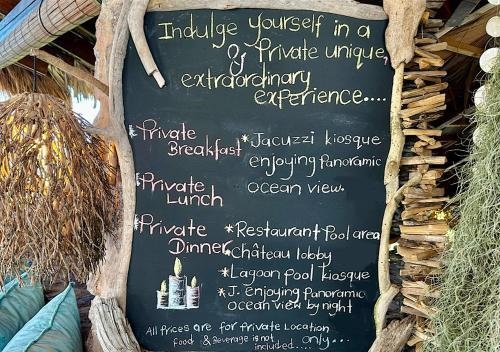 Indulge yourself in a
& Private unique,
extraordinary
experience....
*Private
Breakfast
*Jacuzzi kiosque
enjoying Panoramic
ocean view.
*Private
Lunch
*Private
Dinner
*Restaurant Pool area
*Château lobby
*Lagoon pool kiosque
*J. enjoying Panoramic
ocean view by night
All Prices are for Private Location
only...
Food & Beverage is not
included....